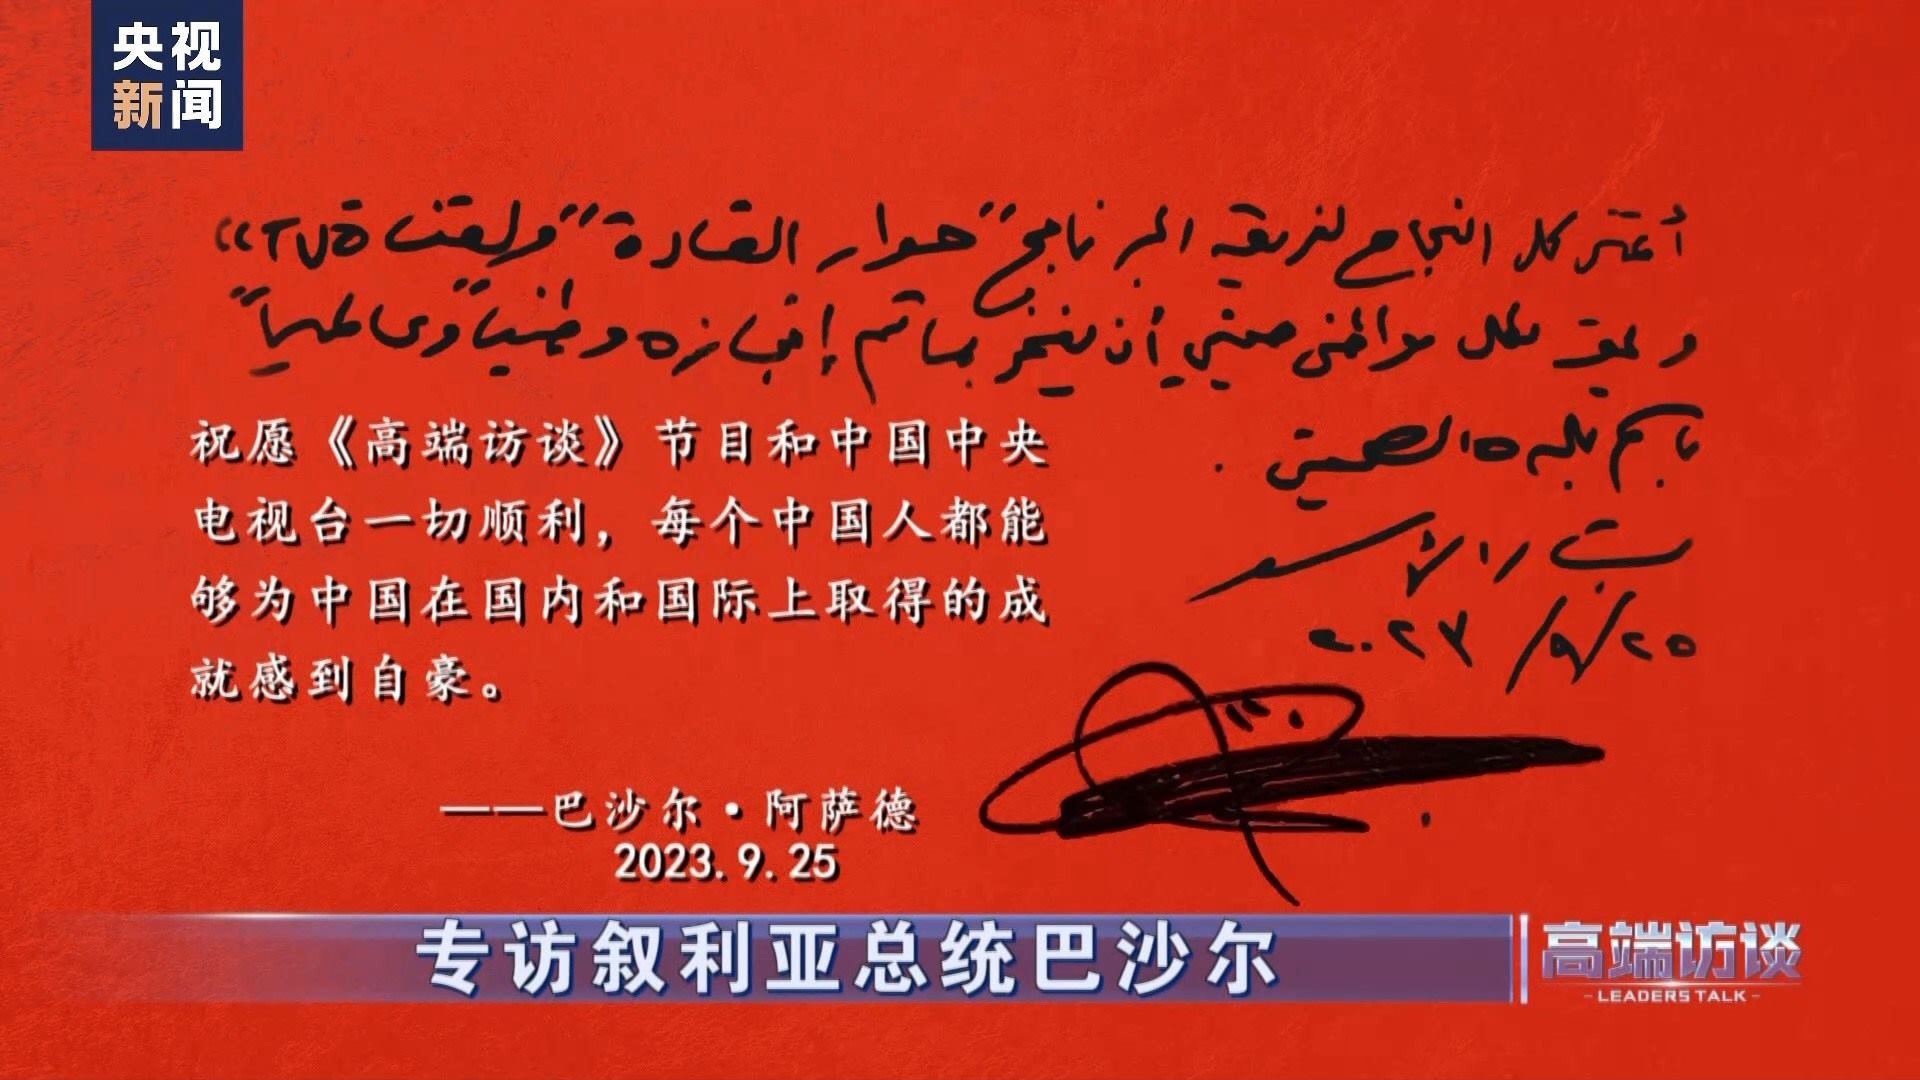 央视
新闻
أتمنى كل النجاح لفريق البرنامج "حوار القادة" ولقناة
ويحق لكل مواطن صيني أن يفخر بما تم إنجازه وطنياً وعالمياً
باسم بلده الصين.
祝愿《高端访谈》节目和中国中央
电视台一切顺利，每个中国人都能
够为中国在国内和国际上取得的成
就感到自豪。
بشار الأسد
٢٠٢٣/٩/٢٥
——巴沙尔·阿萨德
2023.9.25
专访叙利亚总统巴沙尔
高端访谈
-LEADERS TALK-